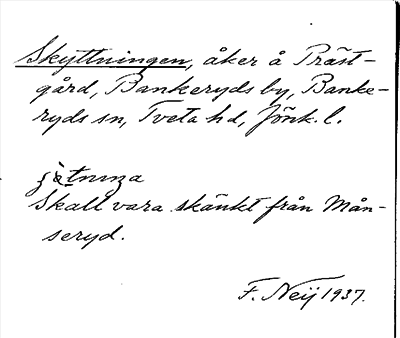 Skyttningen, åker å Präst-
gård, Bankeryds by, Banke-
ryds sn, Tveta hd, Jönk. l.
Skall vara skänkt från Mån-
seryd.
F. Neij 1937.